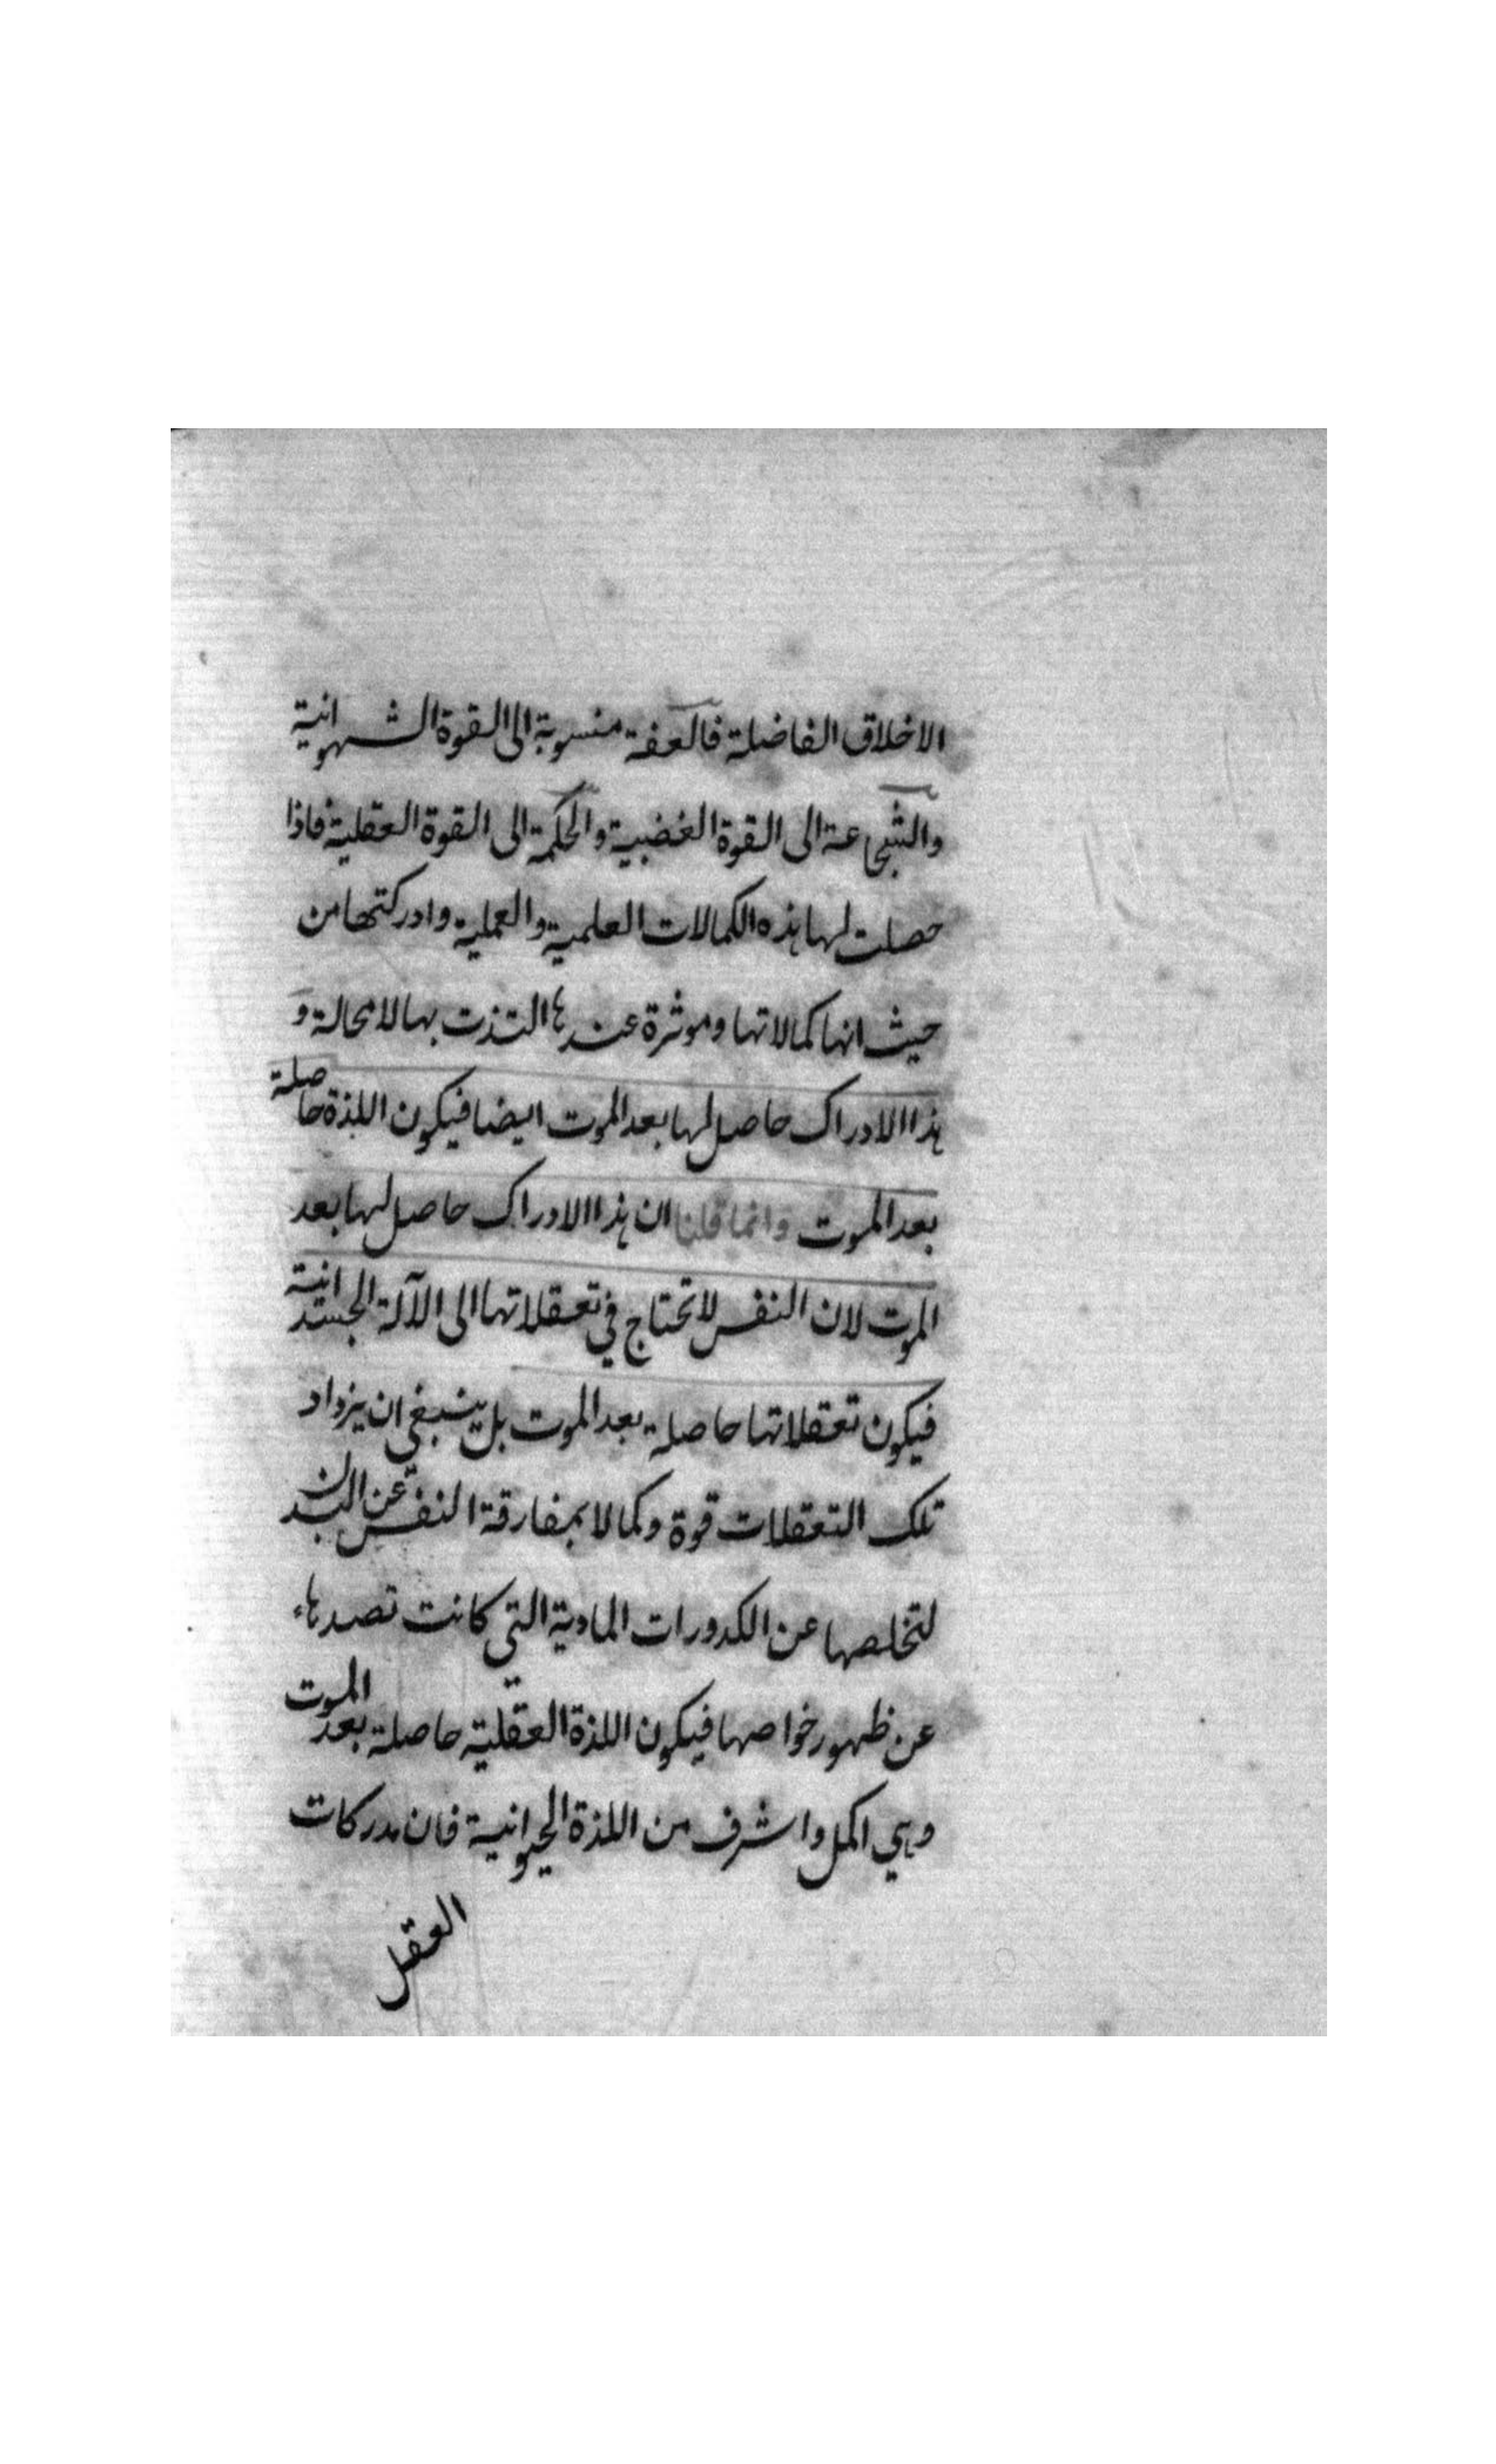 الاخلاق الفاضلة فالعفة منسوبة الى القوة الشهوانية
والشجاعة الى القوة الغضبية والحكمة الى القوة العقلية فاذا
حصلت لها هذه الكمالات العلمية والعملية وادركتها من
حيث انها كمالاتها وموثرة عندها التذت بها لا محالة و
هذا الادراك حاصل لها بعد الموت ايضا فيكون اللذة حاصلة
بعد الموت وانما قلنا ان هذا الادراك حاصل لها بعد
الموت لان النفس لا تحتاج في تعقلاتها الى الآلة الجسدانية
فيكون تعقلاتها حاصلة بعد الموت بل ينبغي ان يزداد
تلك التعقلات قوة وكمالا بمفارقة النفس عن البدن
لتخلصها عن الكدورات المادية التي كانت تصدها
عن ظهور خواصها فيكون اللذة العقلية حاصلة بعد الموت
وهي اكمل واشرف من اللذة الحيوانية فان مدركات
العقل